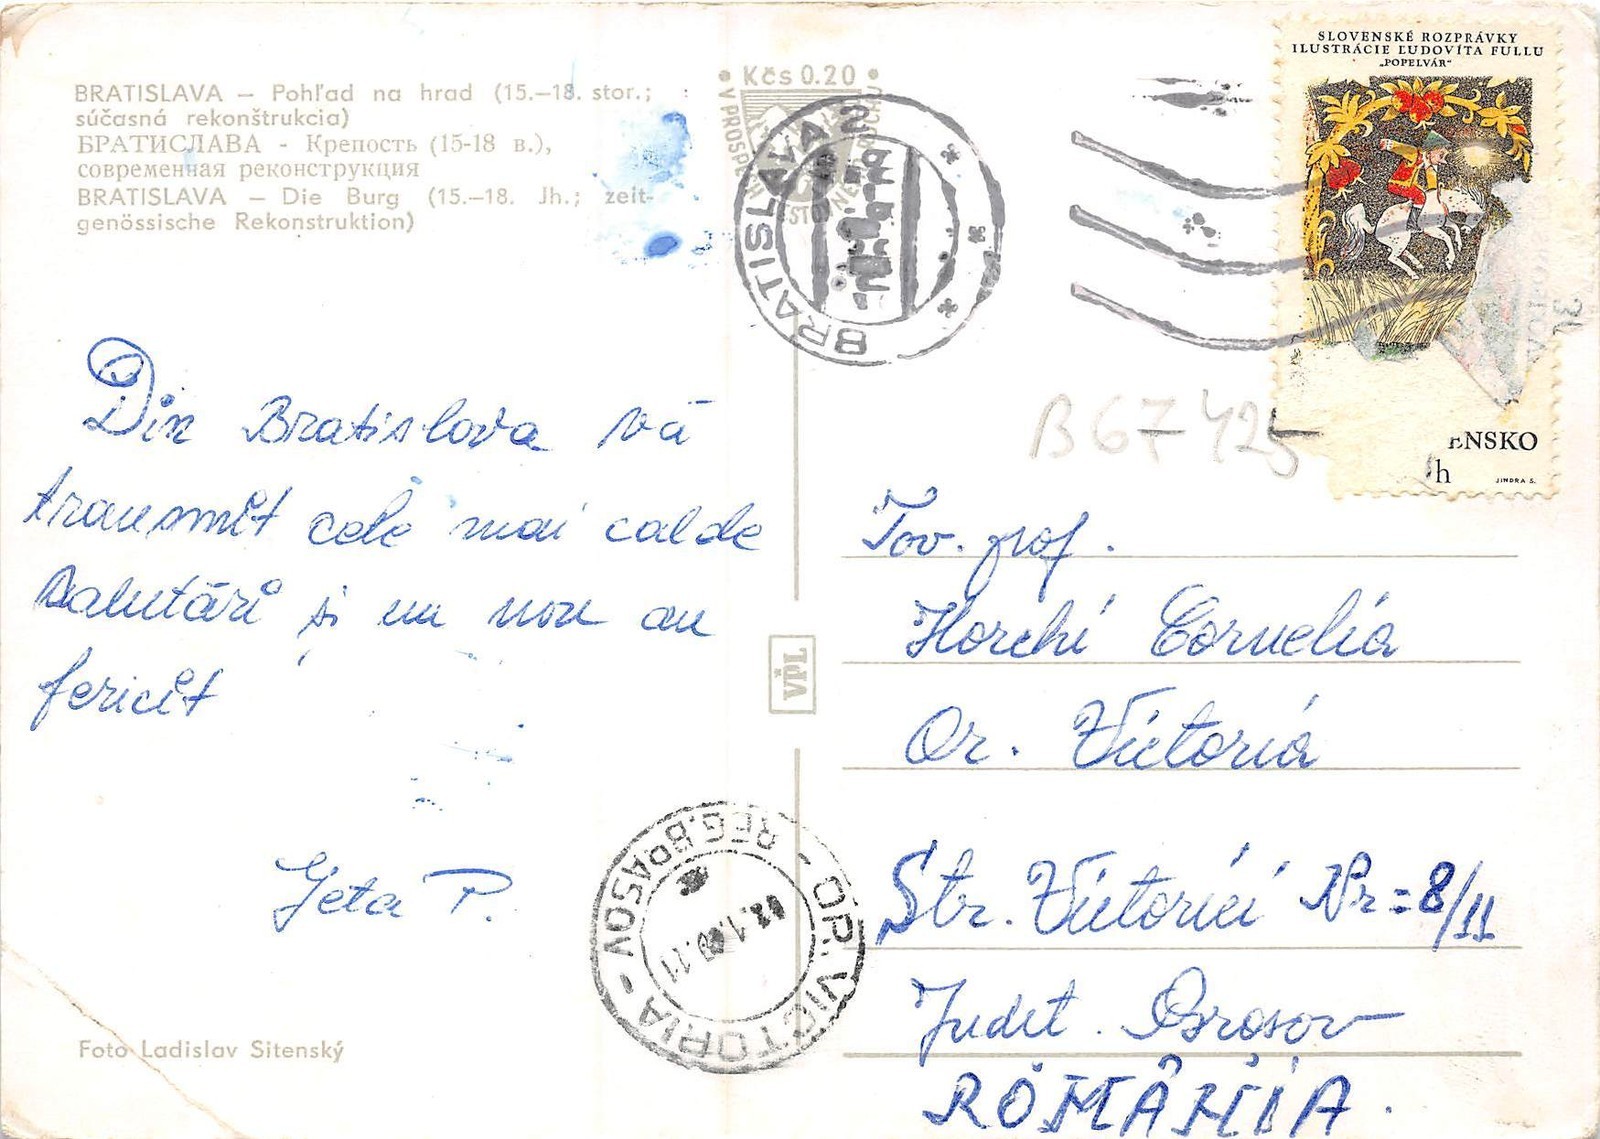 BRATISLAVA — Pohľad na hrad (15.—18. stor.;
súčasná rekonštrukcia)
БРАТИСЛАВА - Крепость (15-18 в.),
современная реконструкция
BRATISLAVA — Die Burg (15.—18. Jh.; zeit-
genössische Rekonstruktion)
Din Bratislava vă
transmit cele mai calde
salutări si un nou an
fericit
Geta P.
Foto Ladislav Sitenský
• Kčs 0.20 •
V PROSPECH
BRATISLAVA 2
VPL
OR. VICTORIA - REG. BRASOV -
SLOVENSKÉ ROZPRÁVKY
ILUSTRÁCIE ĽUDOVÍTA FULLU
„POPELVÁR“
ENSKO
h
JINDRA S.
B 67 425
Tov. prof.
Horchi Cornelia
Or. Victoria
Str. Victoriei Nr = 8/11
Judet. Brasov
ROMÂNIA.